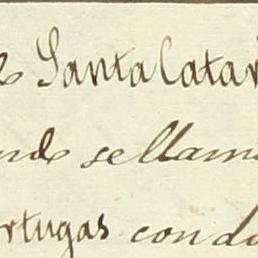 Santa Catar
sellama
rtugas con du